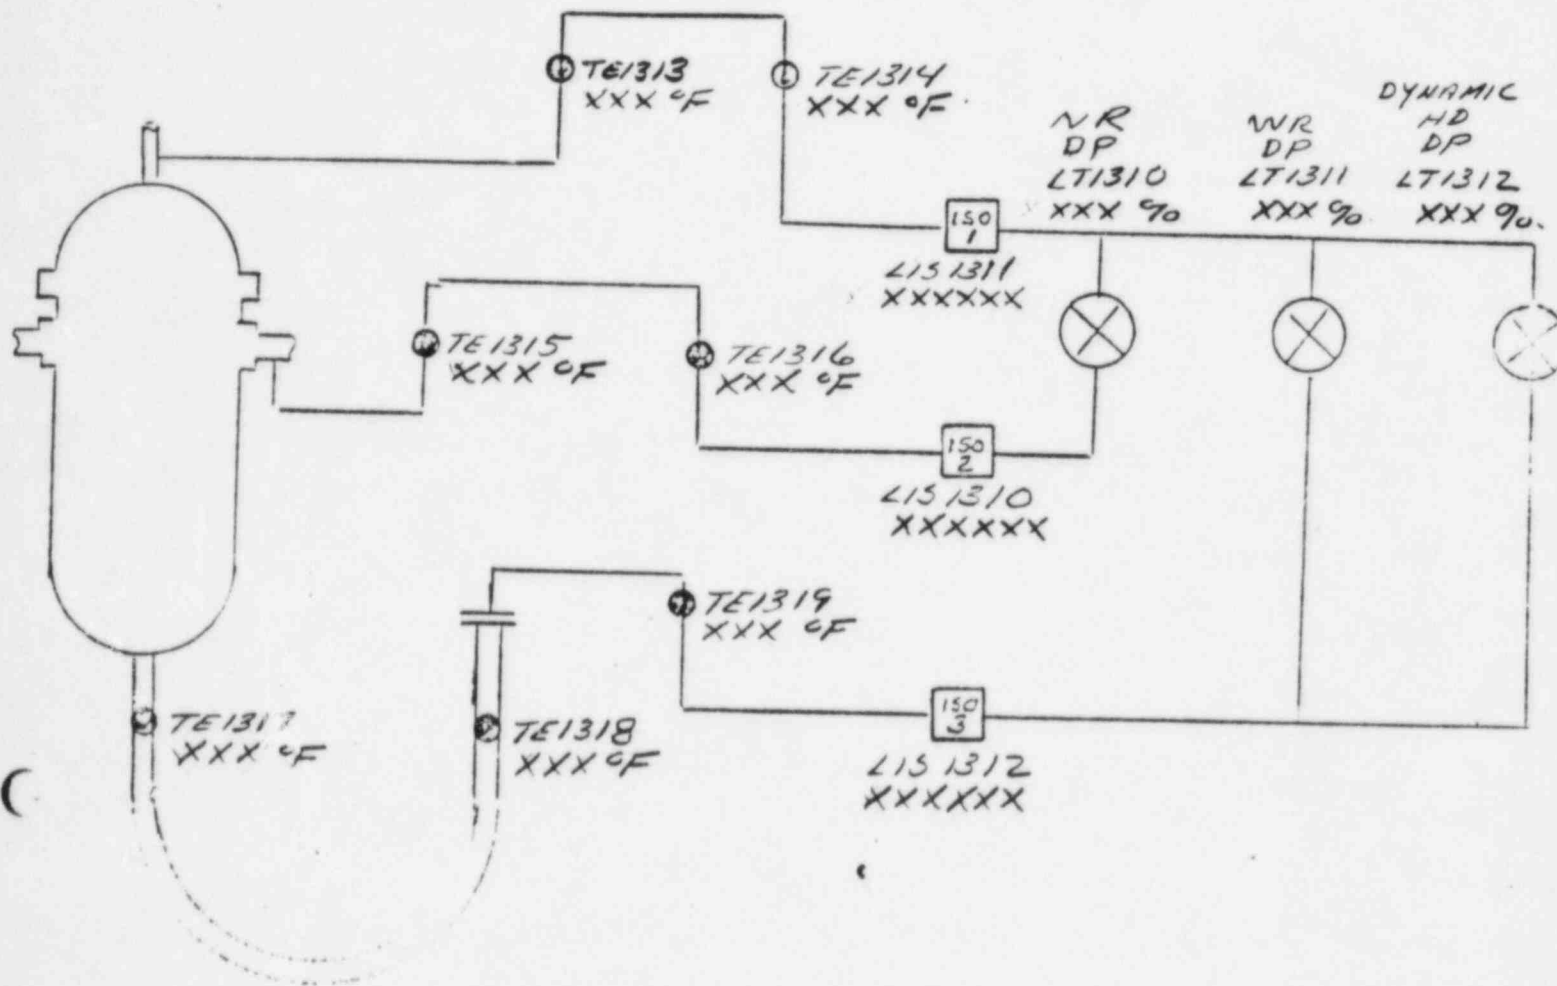 TE1313
XXX °F
TE1314
XXX °F.
NR
DP
LT1310
XXX %
WR
DP
LT1311
XXX %
DYNAMIC
HD
DP
LT1312
XXX %.
ISO
1
LIS 1311
XXXXXX
TE1315
XXX °F
TE1316
XXX °F
ISO
2
LIS 1310
XXXXXX
TE1319
XXX °F
TE1317
XXX °F
TE1318
XXX °F
ISO
3
LIS 1312
XXXXXX